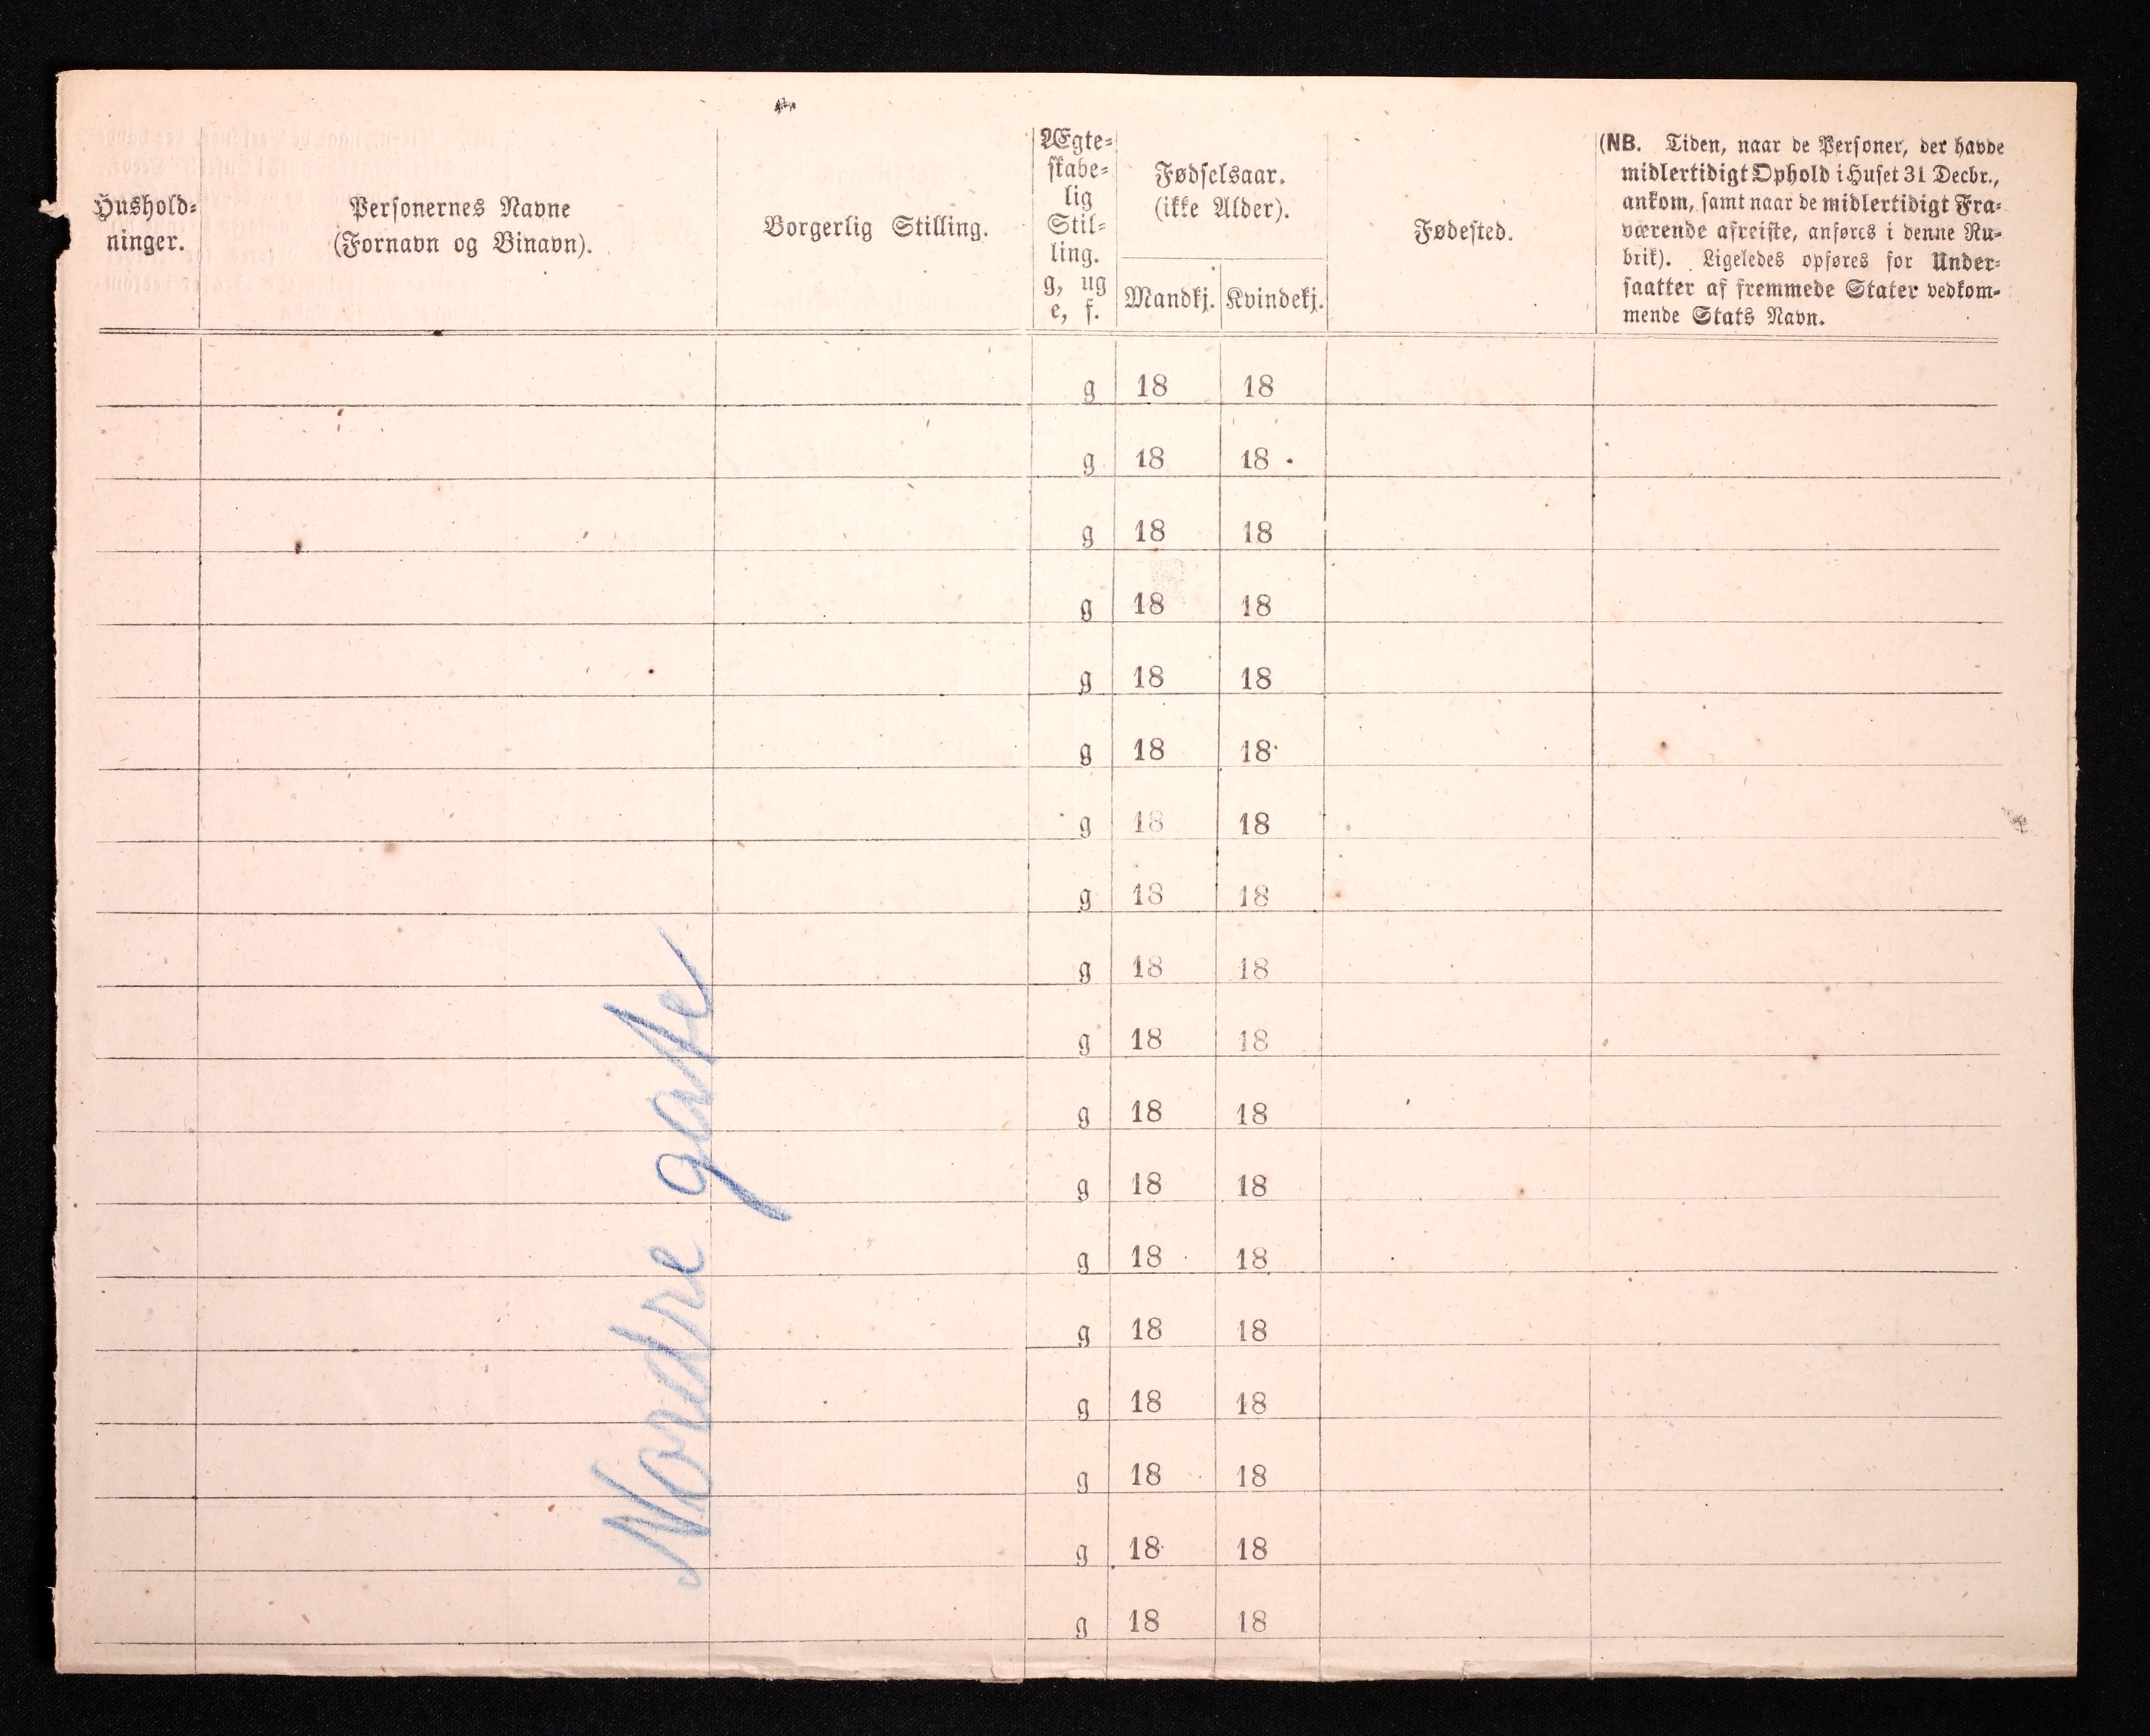 Hushold-
ninger.
Personernes Navne
(Fornavn og Binavn).
Borgerlig Stilling.
Ægte-
skabe-
lig
Stil-
ling.
g, ug
e, f.
Fødselsaar.
(ikke Alder).
Mandkj. Kvindekj.
Fødested.
(NB. Tiden, naar de Personer, der havde
midlertidigt Ophold i Huset 31 Decbr.,
ankom, samt naar de midlertidigt Fra-
værende afreiste, anføres i denne Ru-
brik). Ligeledes opføres for Under-
saatter af fremmede Stater vedkom-
mende Stats Navn.
g 18 18
g 18 18
g 18 18
g 18 18
g 18 18
g 18 18
g 18 18
g 18 18
g 18 18
g 18 18
g 18 18
g 18 18
g 18 18
g 18 18
g 18 18
g 18 18
g 18 18
g 18 18
Nordre gatte